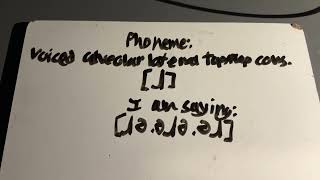 Phoneme:
Voiced alveolar lateral cons.
[ɺ]
I am saying:
[ɺə.əɺə.əɺ]